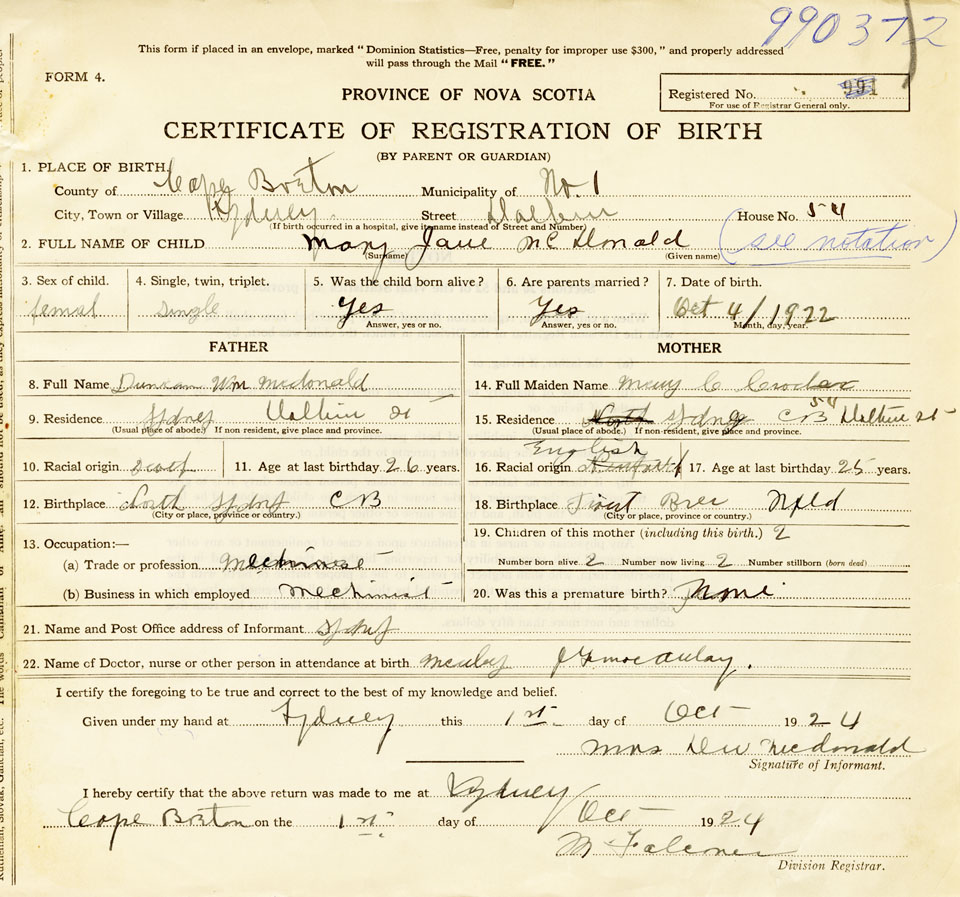 990372
This form if placed in an envelope, marked "Dominion Statistics—Free, penalty for improper use $300," and properly addressed
will pass through the Mail "FREE."
FORM 4.
Registered No. 991
For use of Registrar General only.
PROVINCE OF NOVA SCOTIA
CERTIFICATE OF REGISTRATION OF BIRTH
(BY PARENT OR GUARDIAN)
1. PLACE OF BIRTH.
County of Cape Breton Municipality of No. 1
City, Town or Village Sydney Street House No. 54
(If birth occurred in a hospital, give its name instead of Street and Number)
2. FULL NAME OF CHILD Mary Jane McDonald (see notation)
(Surname) (Given name)
3. Sex of child. 4. Single, twin, triplet. 5. Was the child born alive? 6. Are parents married? 7. Date of birth.
femal single Yes Yes Oct 4/1922
Answer, yes or no. Answer, yes or no. Month, day, year.
FATHER MOTHER
8. Full Name Duncan Wm Mcdonald 14. Full Maiden Name Mary C
9. Residence Sydney St 15. Residence North Sydney CB 54 St
(Usual place of abode.) If non resident, give place and province. (Usual place of abode.) If non-resident, give place and province.
English
10. Racial origin 11. Age at last birthday 26 years. 16. Racial origin 17. Age at last birthday 25 years.
12. Birthplace North Sydney CB 18. Birthplace Nfld
(City or place, province or country.) (City or place, province or country.)
19. Children of this mother (including this birth.) 2
13. Occupation:—
Number born alive 2 Number now living 2 Number stillborn (born dead)
(a) Trade or profession
(b) Business in which employed Mechinist 20. Was this a premature birth?
21. Name and Post Office address of Informant Sydney
22. Name of Doctor, nurse or other person in attendance at birth
I certify the foregoing to be true and correct to the best of my knowledge and belief.
Given under my hand at Sydney this 1st day of Oct 1924
Mrs DW Mcdonald
Signature of Informant.
I hereby certify that the above return was made to me at Sydney
Cape Breton on the 1st day of Oct 1924
Division Registrar.